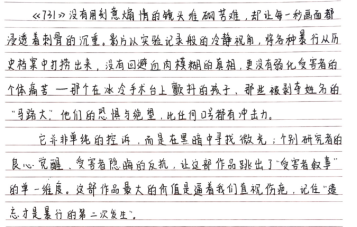 《731》没有用刻意煽情的镜头堆砌苦难，却让每一秒画面都
浸透着刺骨的沉重。影片以实验记录般的冷静视角，将各种暴行从历
史档案中打捞出来，没有回避血肉模糊的真相，更没有弱化受害者的
个体痛苦——那个在冰冷手术台上颤抖的孩子，那些被剥夺姓名的
“马路大”他们的恐惧与绝望，比任何口号都有冲击力。
它并非单纯的控诉，而是在黑暗中寻找微光：个别研究者的
良心觉醒，受害者隐晦的反抗，让这部作品跳出了“受害者叙事”
的单一维度。这部作品最大的价值是逼着我们直视伤疤，记住“遗
忘才是暴行的第二次发生”。